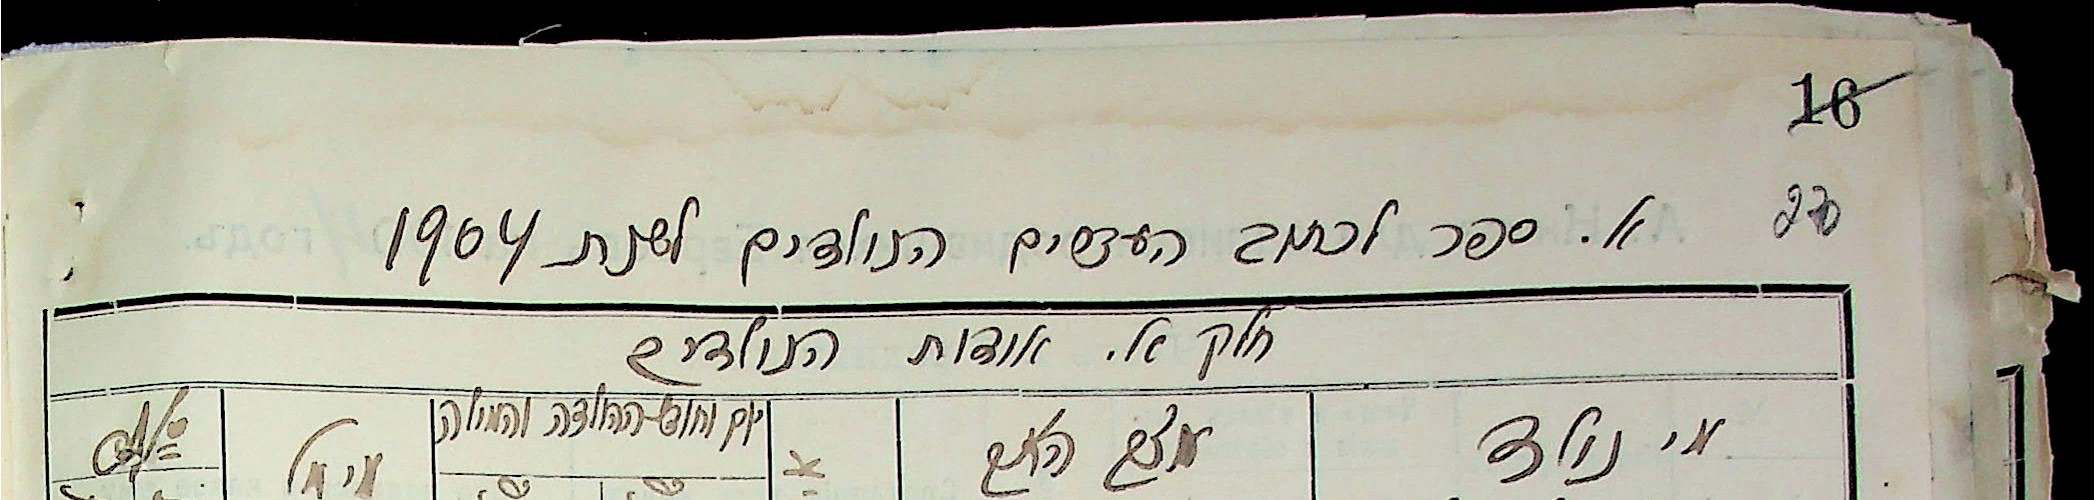 16
א. ספר לכתב העברים הנולדים לשנת 1904
חלק א'. אודות הנולדים
מי נולד
מצב האב
יום וחודש ההולדה והמילה
מי מל